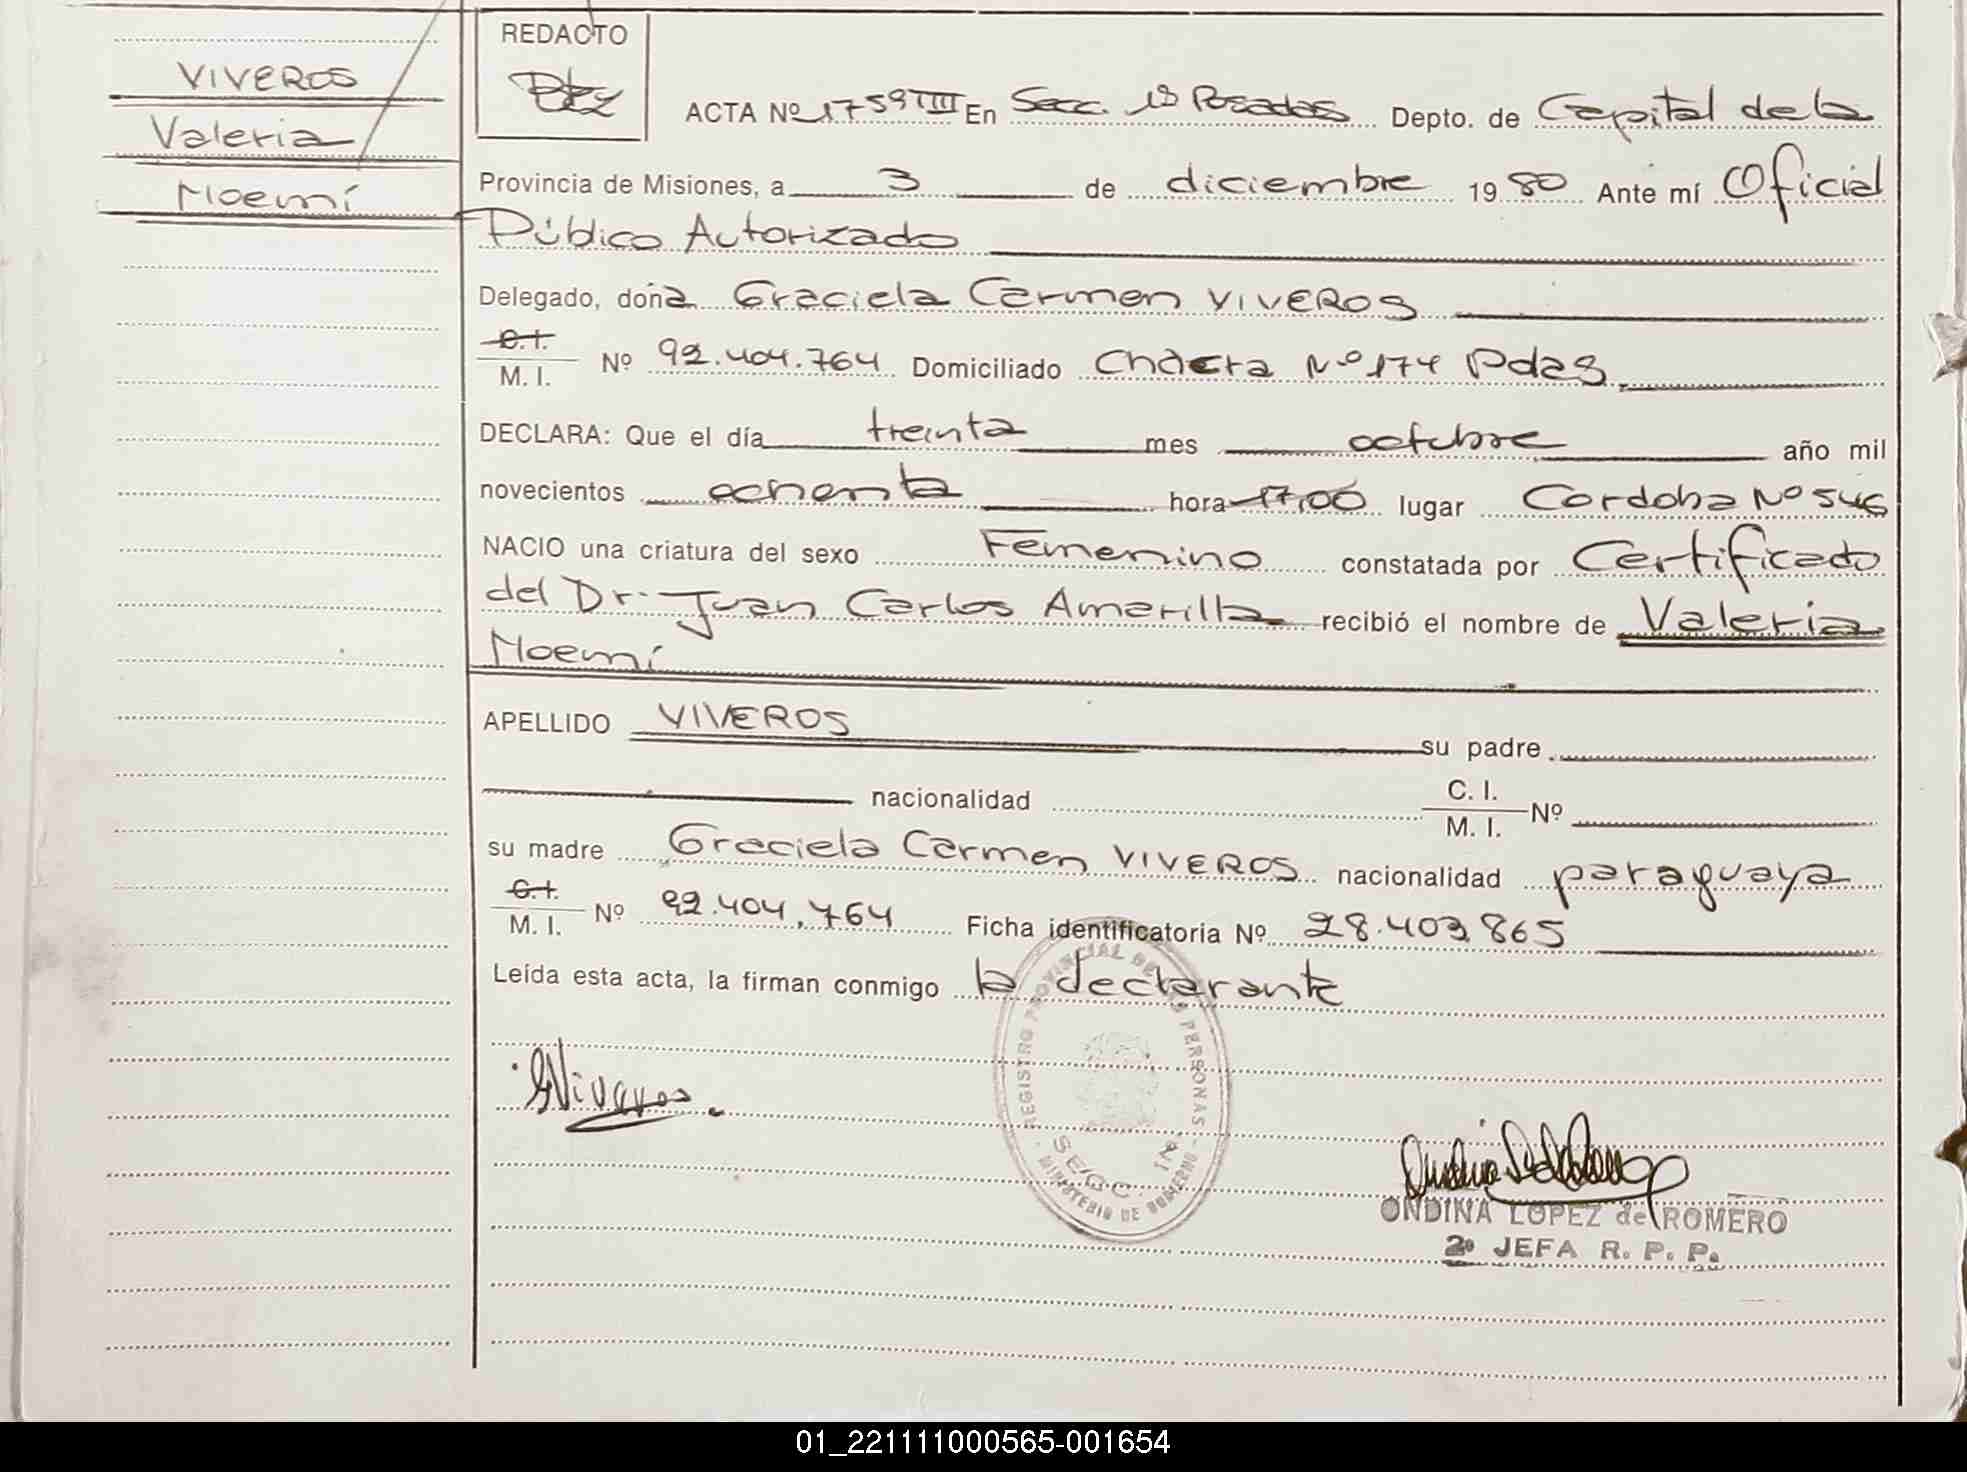 VIVEROS
Valeria
Noemí
REDACTO
ACTA Nº 1759 TIII En Secc. 1ª Posadas Depto. de Capital de la
Provincia de Misiones, a 3 de diciembre 1980 Ante mí Oficial
Público Autorizado
Delegado, doña Graciela Carmen VIVEROS
C.I.
M. I. Nº 92.404.764 Domiciliado Chacra Nº 174 Pdas.
DECLARA: Que el día treinta mes octubre año mil
novecientos ochenta hora 17,00 lugar Cordoba Nº 546
NACIO una criatura del sexo Femenino constatada por Certificado
del Dr. Juan Carlos Amarilla recibió el nombre de Valeria
Noemí
APELLIDO VIVEROS su padre
nacionalidad C. I.
M. I. Nº
su madre Graciela Carmen VIVEROS nacionalidad paraguaya
C.I.
M. I. Nº 92.404.764 Ficha identificatoria Nº 28.403.865
Leída esta acta, la firman conmigo la declarante
GViveros
REGISTRO PROVINCIAL DE LAS PERSONAS
MINISTERIO DE GOBIERNO
ONDINA LOPEZ de ROMERO
2º JEFA R. P. P.
01_221111000565-001654